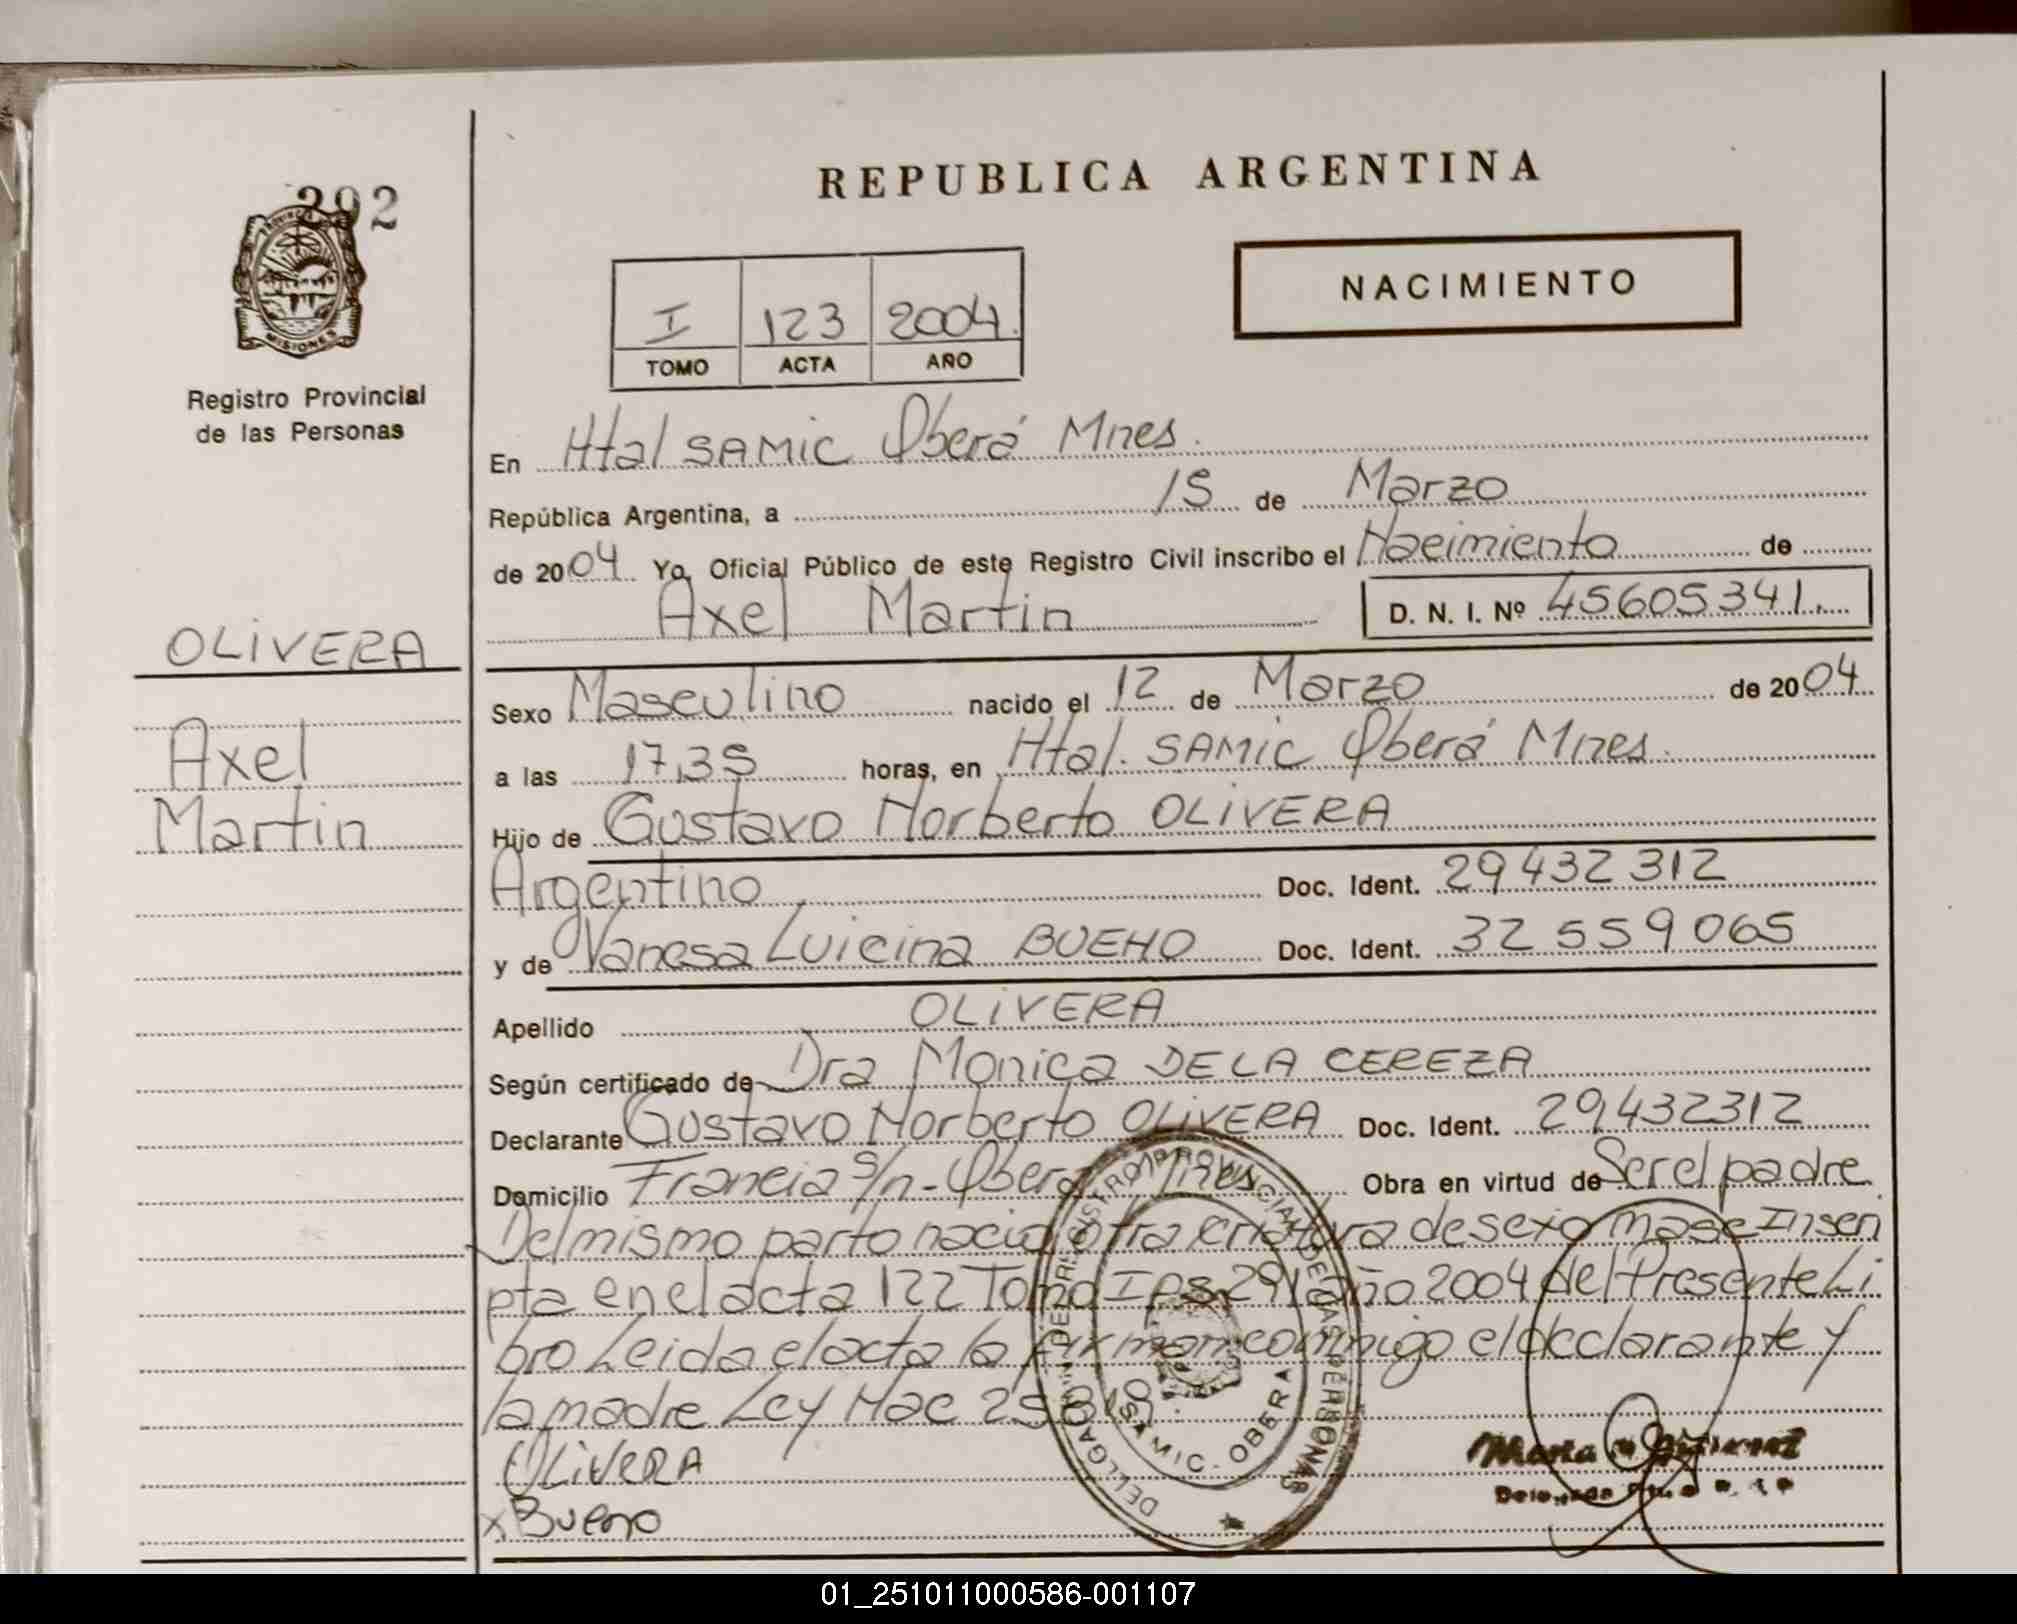 292
MISIONES
Registro Provincial
de las Personas
OLIVERA
Axel
Martin
REPUBLICA ARGENTINA
NACIMIENTO
I 123 2004.
TOMO ACTA AÑO
En Htal SAMIC Oberá Mnes.
República Argentina, a 15 de Marzo
de 2004 Yo, Oficial Público de este Registro Civil inscribo el Nacimiento de
Axel Martin D. N. I. Nº 45605341.
Sexo Masculino nacido el 12 de Marzo de 2004
a las 17,35 horas, en Htal. SAMIC Oberá Mnes.
Hijo de Gustavo Norberto OLIVERA
Argentino Doc. Ident. 29 432 312
y de Vanesa Luicina BUENO Doc. Ident. 32 559 065
Apellido OLIVERA
Según certificado de Dra Monica DE LA CEREZA
Declarante Gustavo Norberto OLIVERA Doc. Ident. 29,432312
Domicilio Francia s/n - Oberá Mnes Obra en virtud de Ser el padre
Del mismo parto nacio otra criatura de sexo masc Inscri
pta en el acta 122 Tomo I Fs 291 año 2004 del Presente Li
bro Leida el acta la firman conmigo el declarante y
la madre Ley Nac
OLIVERA
x Bueno
REGISTRO PROVINCIAL DE LAS PERSONAS
SAMIC - OBERA
01_251011000586-001107